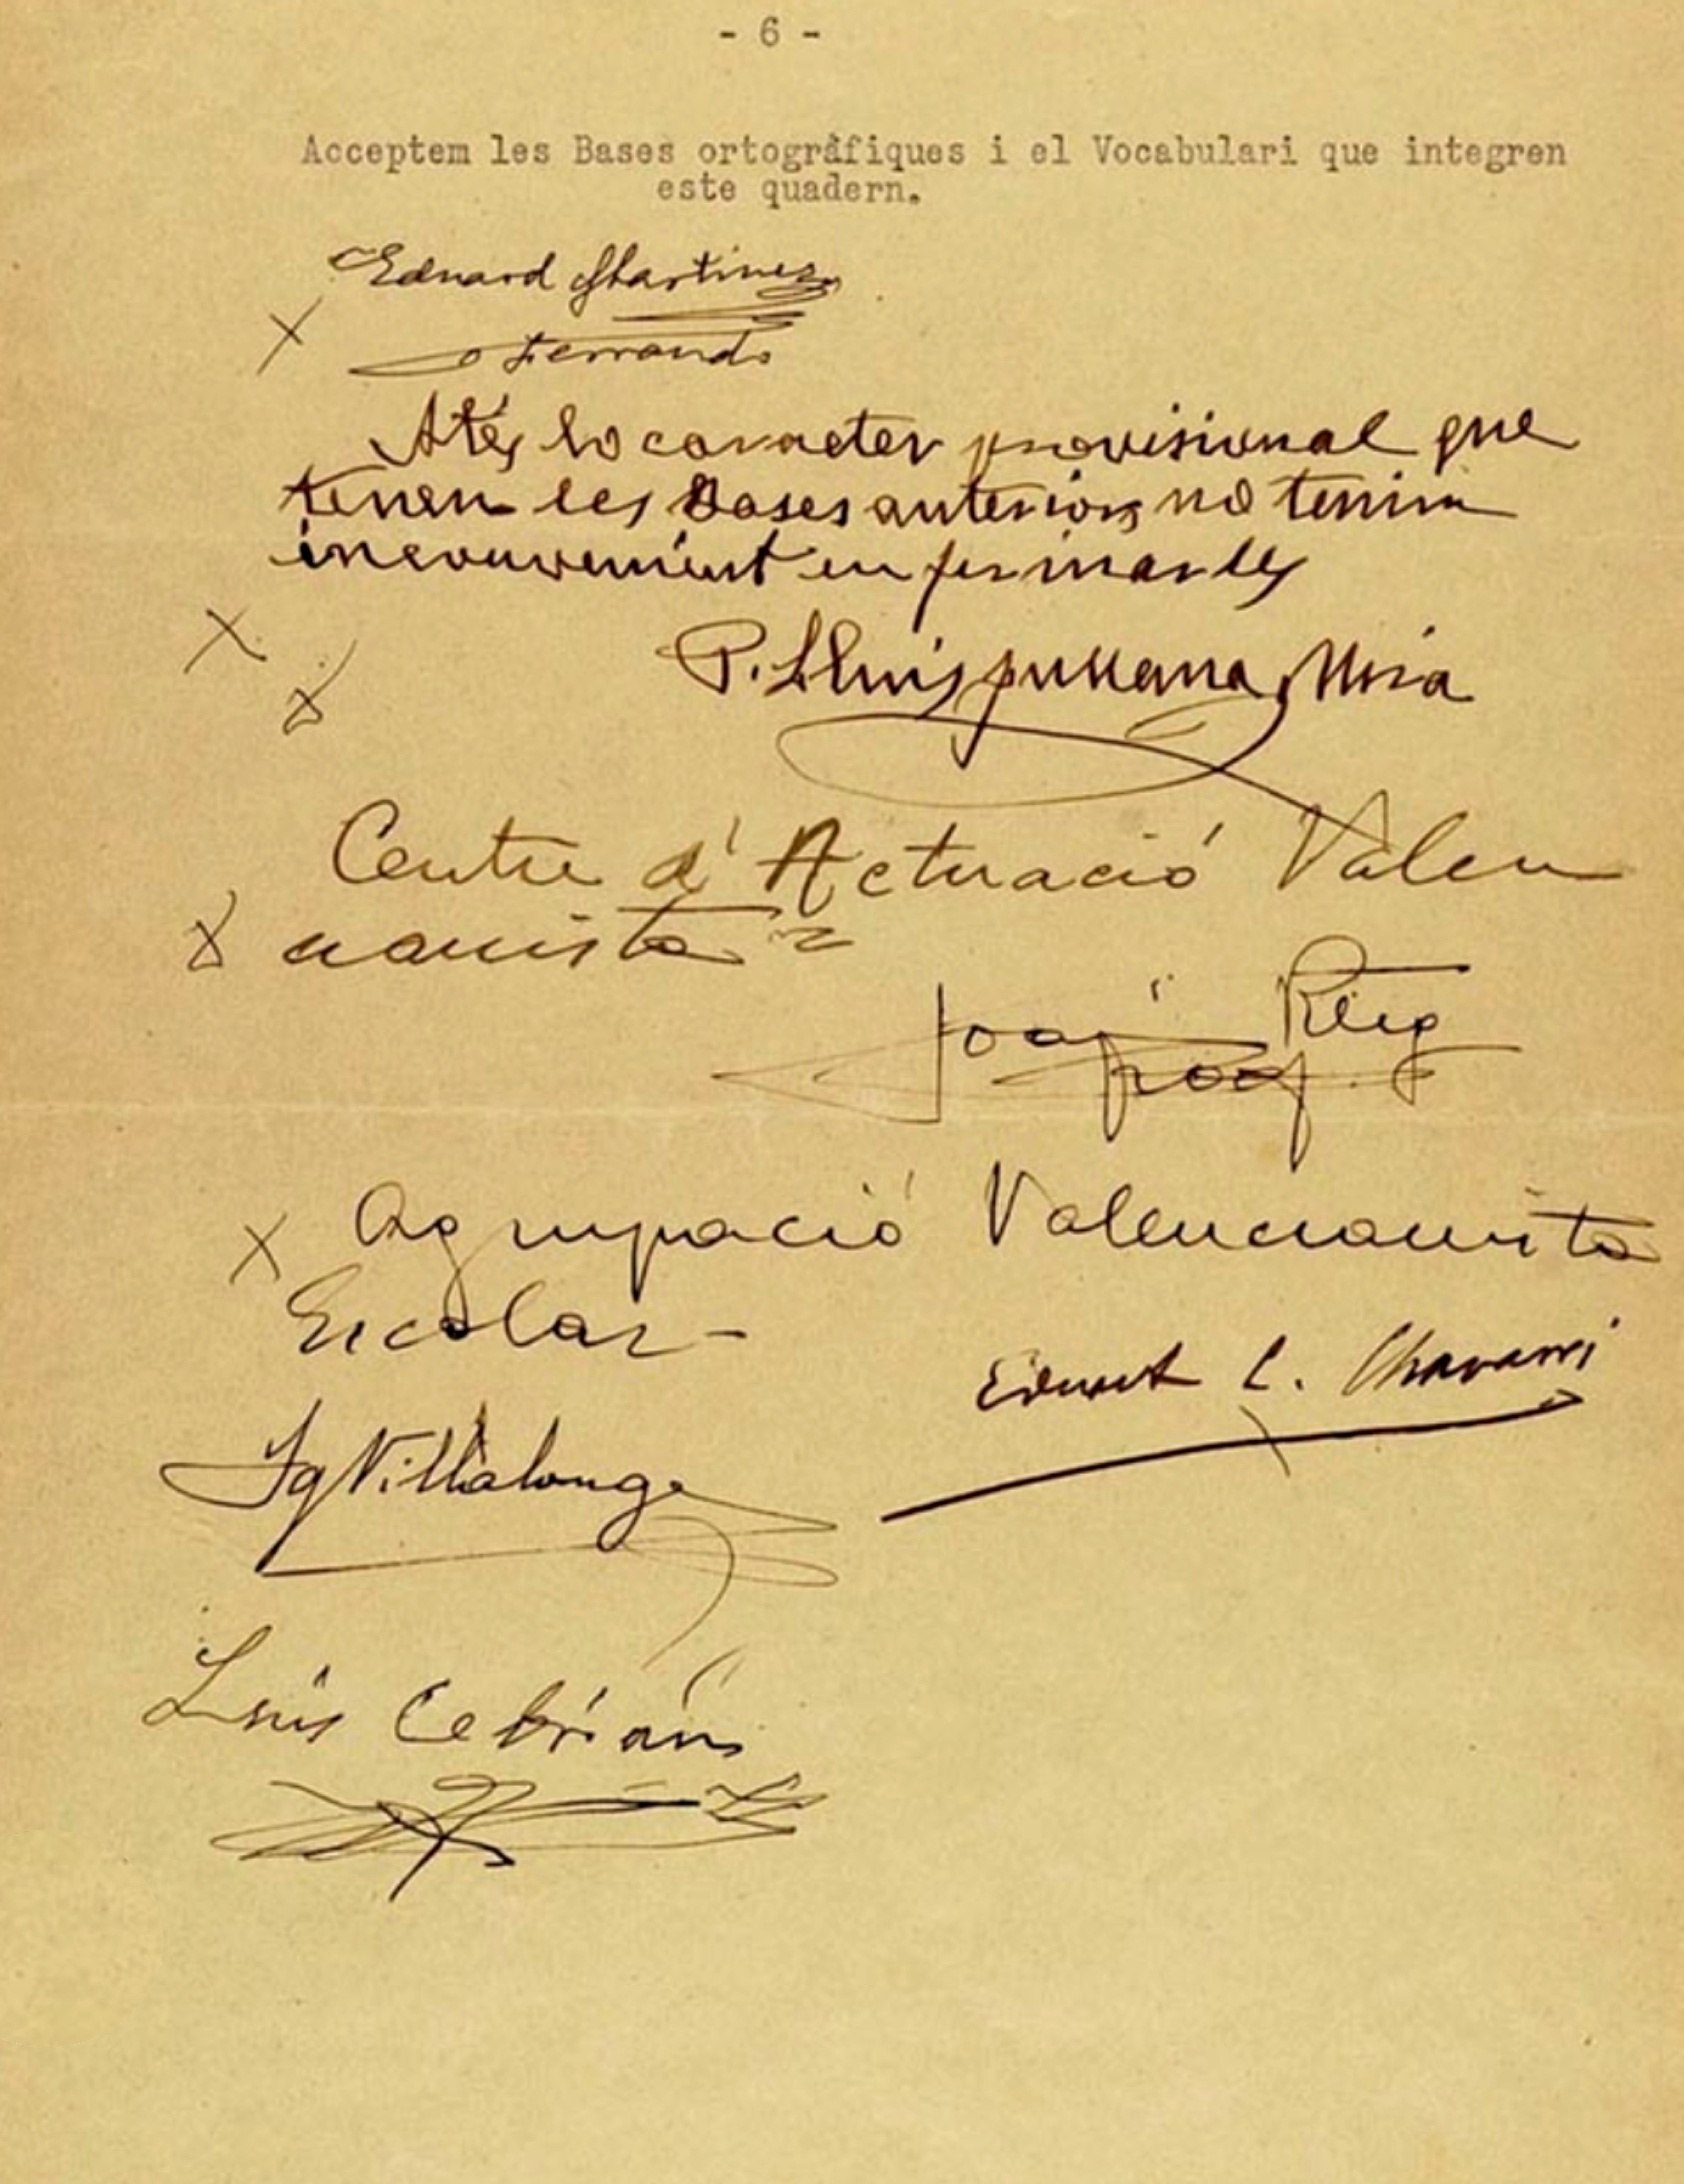 - 6 -
Acceptem les Bases ortogràfiques i el Vocabulari que integren
este quadern.
Eduard Martinez
Ferrando
Atés lo caracter provisional que
tenen les Bases anteriors no tenim
inconvenient en firmarles
P. Lluis Fullana Mira
Centre d'Actuació Valen
cianista
Joaq Reig
Agrupació Valencianista
Escolar -
Eduart L. Chavarri
Ig Villalonga
Luis Cebrián